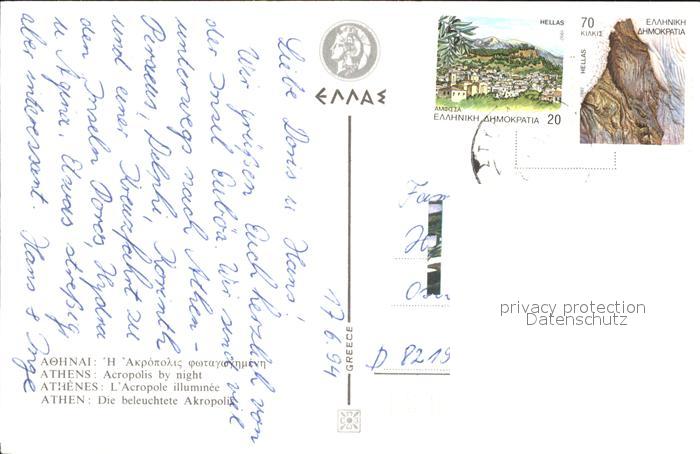 ΕΛΛΑΣ
HELLAS
1992
ΑΜΦΙΣΣΑ
ΕΛΛΗΝΙΚΗ ΔΗΜΟΚΡΑΤΙΑ 20
70
ΚΙΛΚΙΣ
ΕΛΛΗΝΙΚΗ
ΔΗΜΟΚΡΑΤΙΑ
HELLAS
17.6.94
Liebe Doris u Hans!
Wir grüßen Euch herzlich von
der Insel Euböa. Wir sind viel
unterwegs nach Athen -
Piraeus, Delphi, Korinth
und einer Kreuzfahrt zu
den Inseln Poros, Hydra
u Ägina. Etwas streßig
aber interessant. Hans & Inge
Fam
D 8219
GREECE
privacy protection
Datenschutz
ΑΘΗΝΑΙ: Ἡ Ἀκρόπολις φωταγωγημένη
ATHENS: Acropolis by night
ATHÈNES: L'Acropole illuminée
ATHEN: Die beleuchtete Akropolis